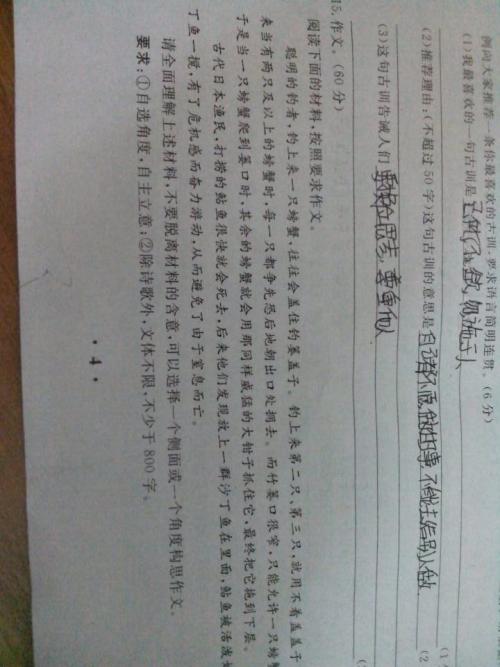 例向大家推荐一条你最喜欢的古训,要求语言简明连贯。(6分)
(1)我最喜欢的一句古训是 己所不欲,勿施于人
(2)推荐理由:(不超过50字)这句古训的意思是 自己都不愿做的事,不能去给别人做
(3)这句古训告诫人们 换位思考,尊重他人
15.作文。(60分)
阅读下面的材料,按照要求作文。
聪明的钓者,钓上来一只螃蟹,往往会盖住钓篓盖子。钓上来第二只,第三只,就用不着盖盖子
来当有两只及以上的螃蟹时,每一只都争先恐后地朝出口处拥去。而竹篓口很窄,只能允许一只螃蟹
于是当一只螃蟹爬到篓口时,其余的螃蟹就会用那同样威猛的大钳子抓住它,最终把它拖到下层。
古代日本渔民,打捞的鲇鱼很快就会死去,后来他们发现放上一群沙丁鱼在里面,鲇鱼被活泼
丁鱼一搅,有了危机感而奋力游动,从而避免了由于窒息而亡。
请全面理解上述材料,不要脱离材料的含意,可以选择一个侧面或一个角度构思作文。
要求:①自选角度,自主立意;②除诗歌外,文体不限,不少于800字。
·4·